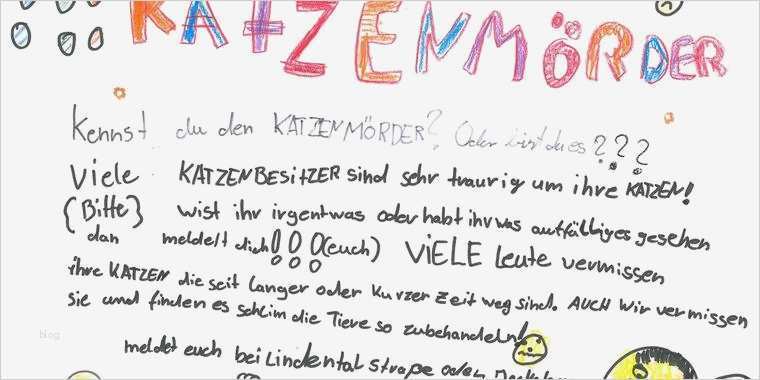 KATZENMÖRDER
Kennst du den KATZENMÖRDER? Oder bist du es???
Viele KATZENBESITZER sind sehr traurig um ihre KATZEN!
(Bitte) wist ihr irgentwas oder habt ihr was auffälliges gesehen
dan meldelt dich!!!(euch) VIELE Leute vermissen
ihre KATZEN die seit langer oder kurzer Zeit weg sind. AUCH wir vermissen
sie und finden es schlim die Tiere so zubehandeln!
meldet euch bei Lindental straße oder
blog